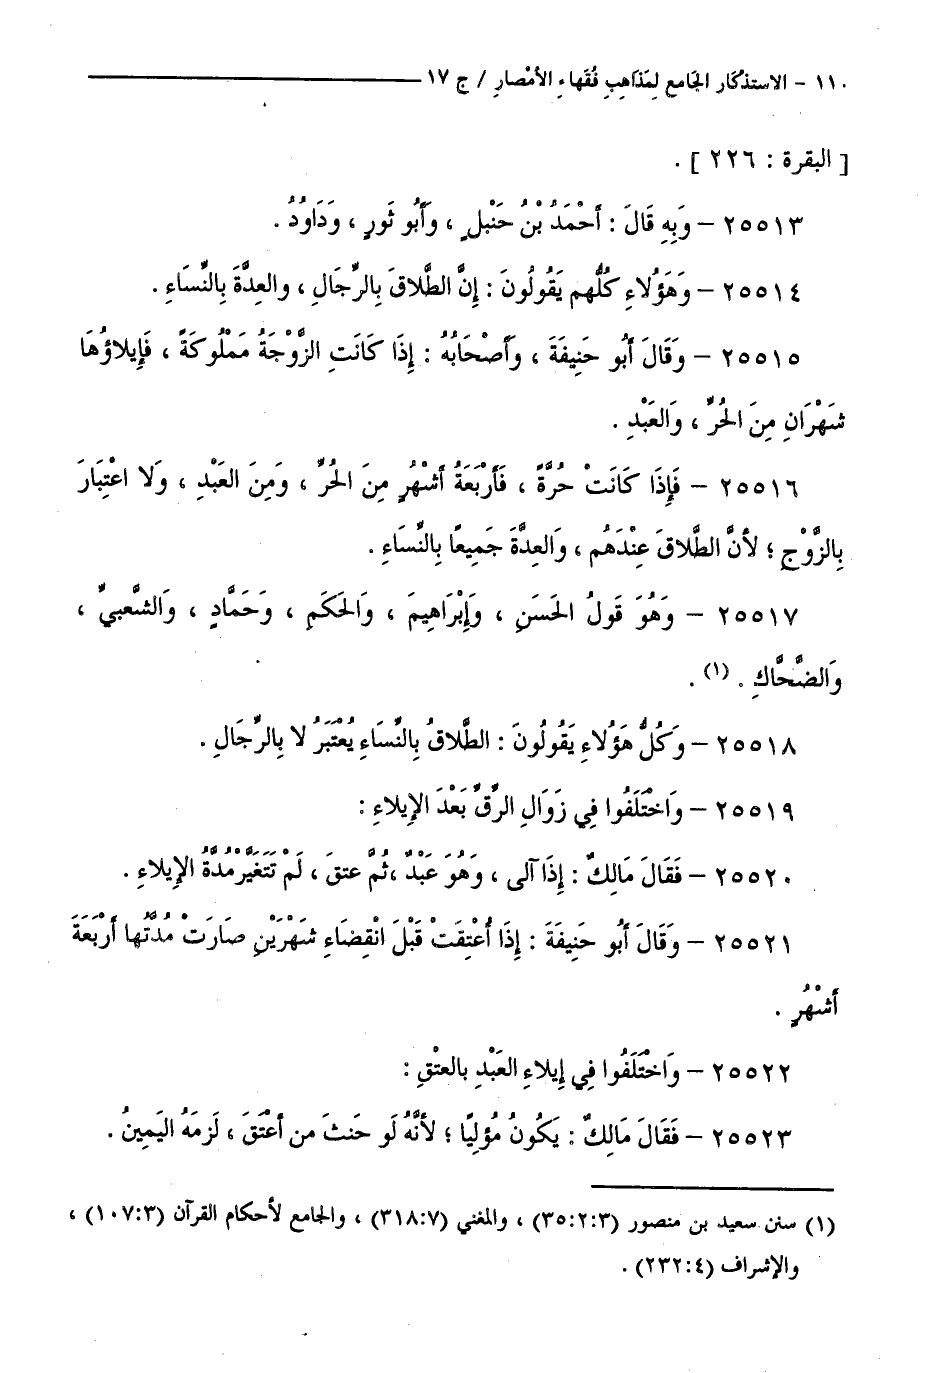 ١١٠ – الاستذْكَار الجَامع لِمَذَاهِبِ فُقَهاءِ الأمْصارِ / ج ١٧
[ البقرة : ٢٢٦ ] .
٢٥٥١٣ – وَبِهِ قَالَ : أحْمَدُ بْنُ حَنْبلٍ ، وَأَبُو ثَورٍ ، وَدَاوُدُ .
٢٥٥١٤ – وَهَؤُلاءِ كُلُّهم يَقُولُونَ : إنَّ الطَّلاقَ بِالرِّجَالِ ، والعِدَّةَ بِالنِّساءِ .
٢٥٥١٥ – وَقَالَ أَبُو حَنِيفَةَ ، وأَصْحَابُهُ : إذَا كَانَتِ الزَّوْجَةُ مَمْلُوكَةً ، فَإيلاؤُهَا
شَهْرَانِ مِنَ الحُرِّ ، وَالعَبْدِ .
٢٥٥١٦ – فَإِذَا كَانَتْ حُرَّةً ، فَأَرْبَعَةُ أشْهُرٍ مِنَ الحُرِّ ، وَمِنَ العَبْدِ ، وَلا اعْتِبَارَ
بِالزَّوْجِ ؛ لأنَّ الطَّلاقَ عِنْدَهُم ، وَالعِدَّةَ جَمِيعًا بِالنِّسَاءِ .
٢٥٥١٧ – وَهُوَ قَولُ الحَسَنِ ، وَإِبْرَاهِيمَ ، وَالحَكَمِ ، وَحَمَّادٍ ، وَالشَّعبيِّ ،
وَالضَّحَّاكِ . (١) .
٢٥٥١٨ – وَكُلُّ هَؤُلاءِ يَقُولُونَ : الطَّلاقُ بِالنِّسَاءِ يُعْتَبَرُ لا بِالرِّجَالِ .
٢٥٥١٩ – وَاخْتَلَفُوا فِي زَوَالِ الرِّقِّ بَعْدَ الإِيلاءِ :
٢٥٥٢٠ – فَقَالَ مَالِكٌ : إذَا آلى ، وَهُوَ عَبْدٌ ،ثُمَّ عتقَ ، لَمْ تَتَغَيَّرْ مُدَّةُ الإِيلاءِ .
٢٥٥٢١ – وَقَالَ أَبُو حَنِيفَةَ : إذَا أُعْتِقَتْ قَبْلَ انْقِضَاءِ شَهْرَيْنِ صَارَتْ مُدَّتُها أَرْبَعَةَ
أَشْهُرٍ .
٢٥٥٢٢ – وَاخْتَلَفُوا فِي إيلاءِ العَبْدِ بالعتْقِ :
٢٥٥٢٣ – فَقَالَ مَالِكٌ : يَكُونُ مُؤلِيًا ؛ لأنَّهُ لَو حَنثَ من أعْتَقَ ، لَزمَهُ اليَمِينُ .
(١) سنن سعيد بن منصور (٣٥:٢:٣) ، والمغني (٣١٨:٧) ، والجامع لأحكام القرآن (١٠٧:٣) ،
والإشراف (٢٣٢:٤) .